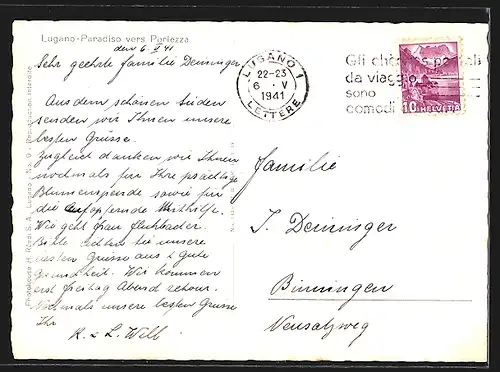 Lugano-Paradiso vers Porlezza
den 6. V 41
Sehr geehrte Familie Denninger
Aus dem schönen Süden
senden wir Ihnen unsere
besten Grüsse.
Zugleich danken wir Ihnen
nochmals für Ihre prächtige
Blumenspende sowie für
die aufopfernde Mithilfe.
Wie geht Frau
Bitte richten Sie unsere
besten Grüsse aus & gute
Gesundheit. Wir kommen
erst Freitag Abend zurück.
Nochmals unsere besten Grüsse
Ihr
K. & L. Will
LUGANO 1
22-23
6 · V
1941
LETTERE
Gli chèques postali
da viaggio
sono
comodi
10 HELVETIA
Familie
J. Denninger
Binningen
Neusatzweg